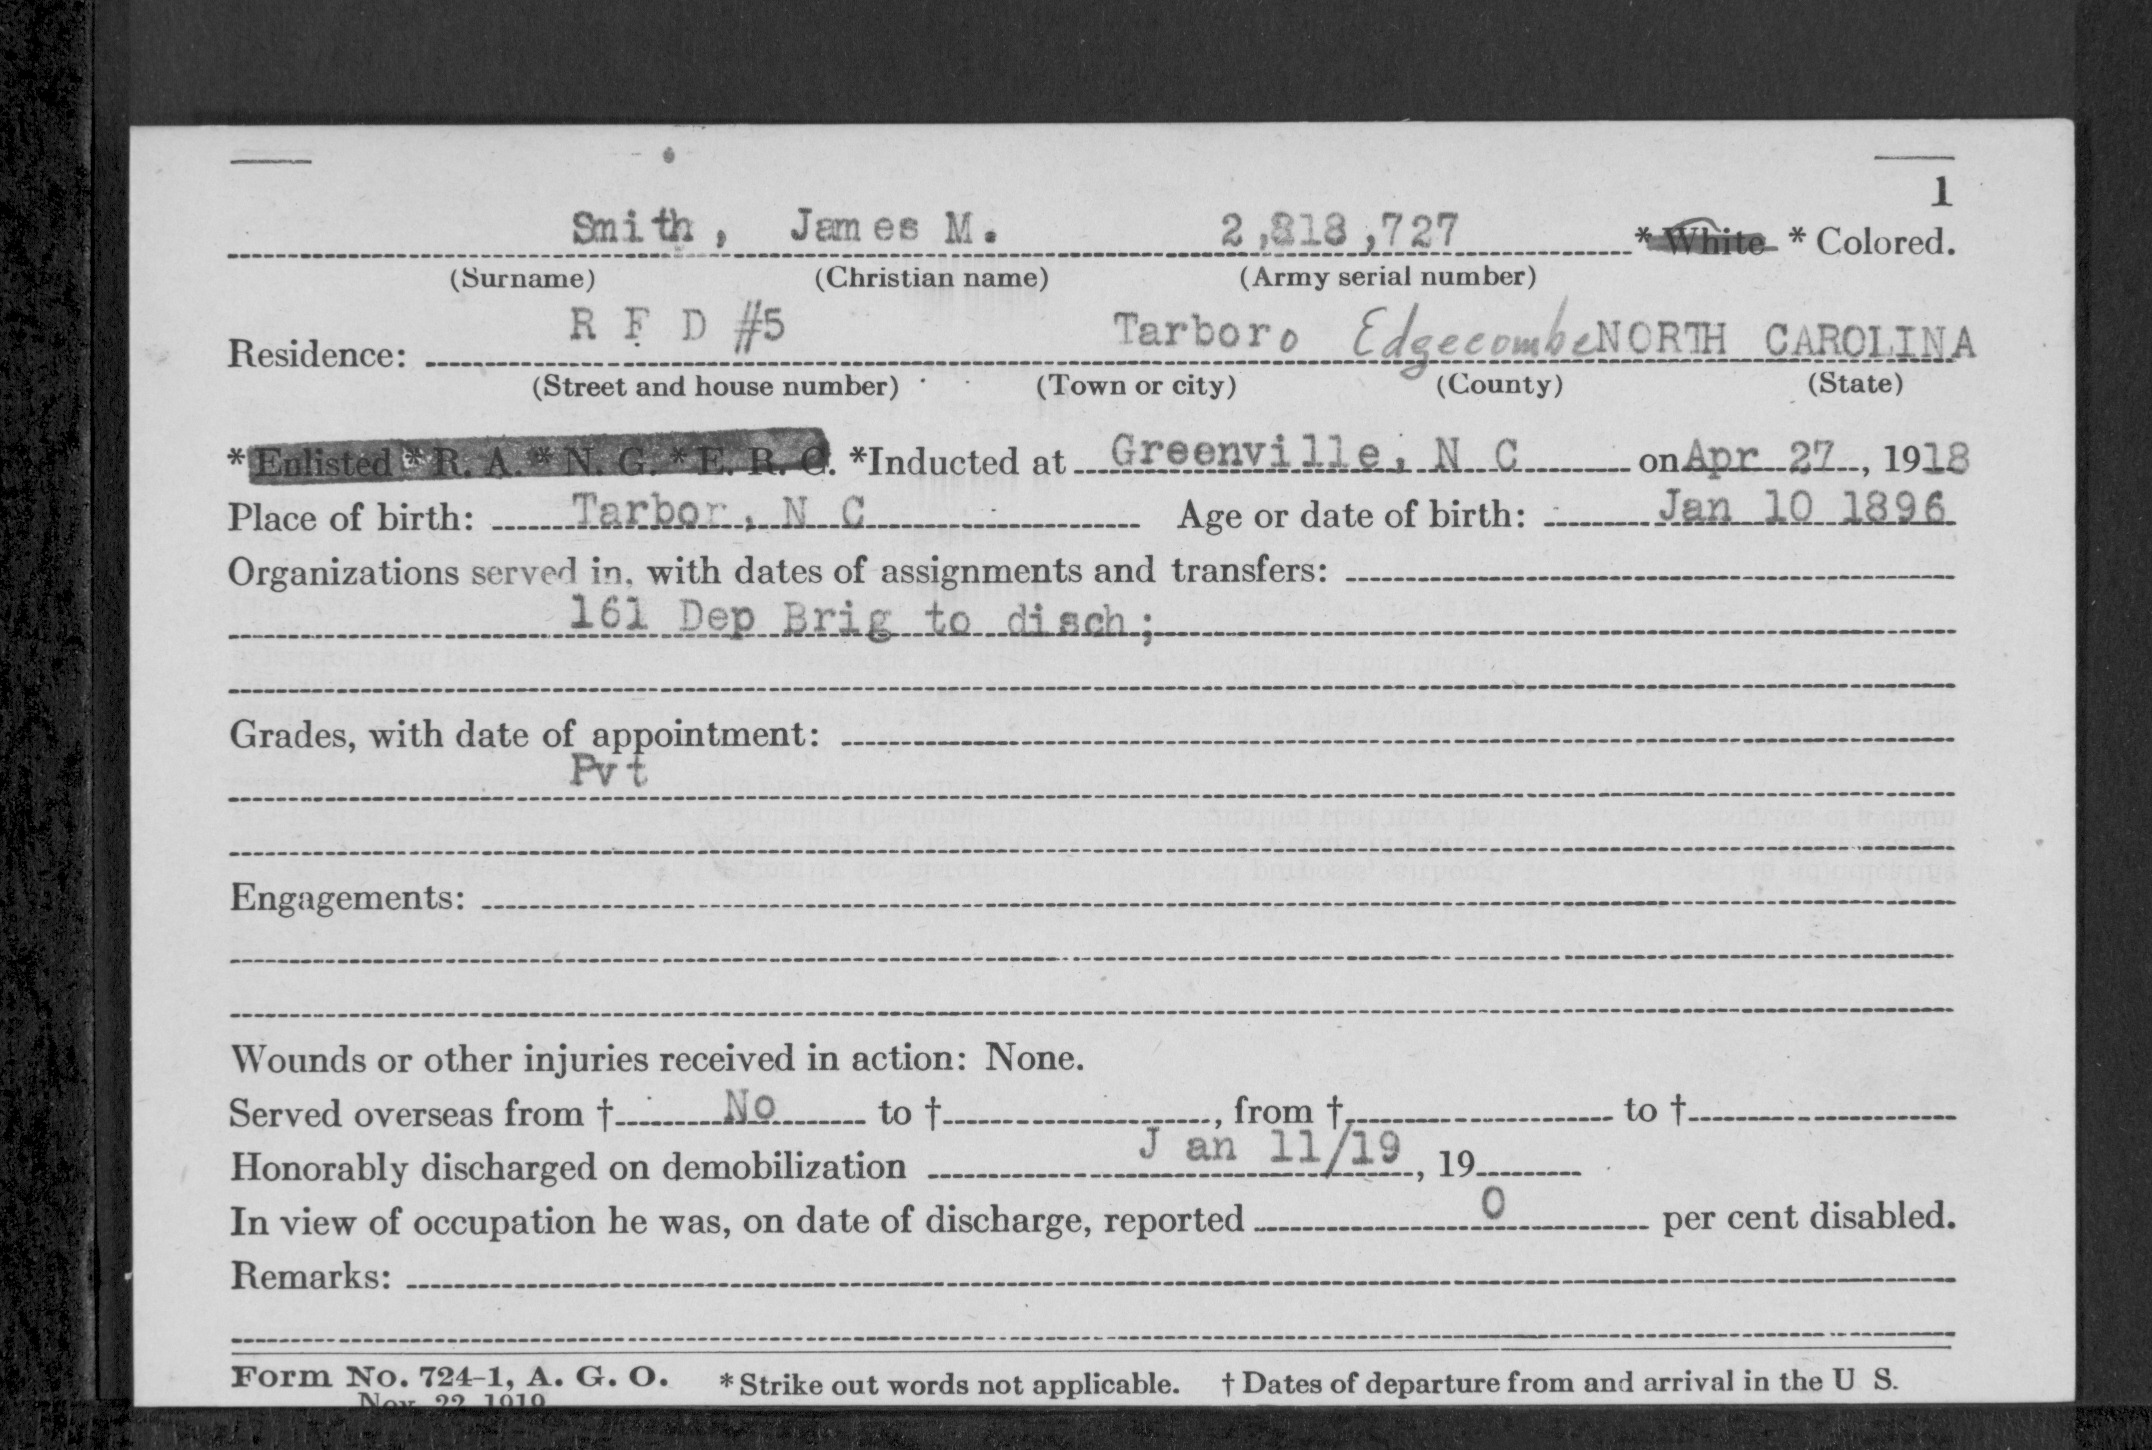 1
Smith, James M. 2,818,727 * White * Colored.
(Surname) (Christian name) (Army serial number)
Residence: R F D #5 Tarboro Edgecombe NORTH CAROLINA
(Street and house number) (Town or city) (County) (State)
* Enlisted * R. A. * N. G. * E. R. C. *Inducted at Greenville, N C on Apr 27, 1918
Place of birth: Tarbor, N C Age or date of birth: Jan 10 1896
Organizations served in, with dates of assignments and transfers:
161 Dep Brig to disch;
Grades, with date of appointment:
Pvt
Engagements:
Wounds or other injuries received in action: None.
Served overseas from † No to †, from † to †
Honorably discharged on demobilization Jan 11/19, 19
In view of occupation he was, on date of discharge, reported 0 per cent disabled.
Remarks:
Form No. 724-1, A. G. O. * Strike out words not applicable. † Dates of departure from and arrival in the U S.
Nov. 22, 1919